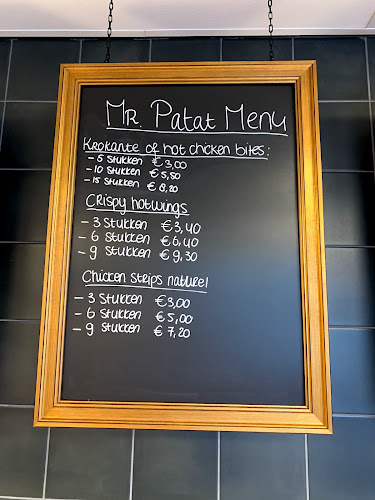 Mr. Patat Menu
Krokante of hot chicken bites:
- 5 Stukken €3,00
- 10 Stukken €5,50
- 15 Stukken €8,20
Crispy hotwings
- 3 Stukken €3,40
- 6 Stukken €6,40
- 9 Stukken €9,30
Chicken strips naturel
- 3 Stukken €3,00
- 6 Stukken €5,00
- 9 Stukken €7,20